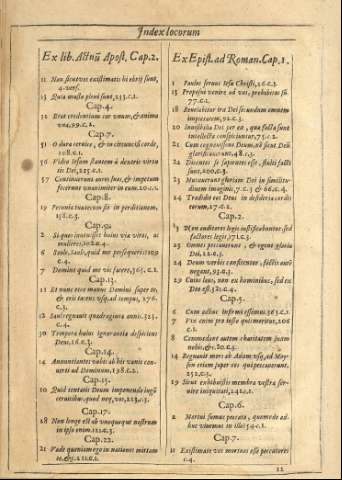 Index locorum
Ex lib. Actuū Apost. Cap. 2.
12 Non sicut vos existimatis hi ebrij sunt,
4. vers.
13 Quia musto pleni sunt, 233. c. 1.
Cap. 4.
32 Erat credentium cor unum, & anima
una, 99. c. 2.
Cap. 7.
51 O dura cervice, & in circuncisi corde,
108. c. 1.
56 Video Iesum stantem à dextris virtu
tis Dei, 225. c. 1.
57 Continuerunt aures suas, & impetum
fecerunt unanimiter in eum. 20. c. 1.
Cap. 8.
20 Pecunia tua tecum sit in perditionem,
158. c. 3.
Cap. 9.
2 Si quos invenisset huius viæ viros, ac
mulieres,
4 Saule, Saule, quid me persequeris?
c. 4.
7 Domine quid me vis facere, 365. c. 1.
Cap. 13.
11 Et nunc ecce manus Domini super te,
& eris cæcus usq; ad tempus, 176.
c. 3.
21 Saul regnavit quadraginta annis. 325.
c. 4.
30 Tempora huius ignorantiæ despiciens
Deus, 16. c. 3.
Cap. 14.
14 Annuntiantes vobis ab his vanis con-
verti ad Dominum, 138. c. 2.
Cap. 15.
10 Quid tentatis Deum imponendo iugū
cervicibus, quod neq; nos, 223. c. 3.
Cap. 17.
28 Non longe est ab unoquoque nostrum
in ipso enim
Cap. 22.
21 Vade quoniam ego in nationes mittam
te,
Ex Epist. ad Roman. Cap. 1.
1 Paulus servus Iesu Christi, 26. c. 3.
13 Proposui venire ad vos, prohibitus sū
77. c. 1.
18 Revelabitur ira Dei secundum omnem
impietatem, 92. c. 3.
20 Invisibilia Dei per ea, quæ facta sunt
intellecta conspiciuntur, 75. c. 2.
21 Cum cognovissent Deum, nō sicut Deū
glorificaverunt, 48. c. 3.
22 Dicentes se sapientes esse, stulti facti
sunt, 200. c. 3.
23 Mutaverunt gloriam Dei in similitu-
dinem imaginis, 7. c. 3 & 66. c. 4.
24 Tradidit eos Deus in desideria cordis
eorum, 17. c. 2.
Cap. 2.
13 Non auditores legis iusti sed
factores legis, 171. c. 3.
23 Omnes peccaverunt, & egent gloria
Dei, 22. c. 3.
24 Deum verbis confitentur, factis autē
negant, 93. c. 3.
29 Cuius laus, non ex hominibus, sed ex
Deo est, 321. c. 4.
Cap. 5.
6 Cum adhuc infirmi essemus 363. c. 1
7 Vix enim pro iusto quis moritur, 206
c. 1.
8 Commendat autem charitatem suam
nobis, &c. 80. c. 4.
14 Regnavit mors ab Adam usq; ad Moy-
sen etiam super eos qui peccaverunt.
252. c. 3.
19 Sicut exhibuistis membra vestra ser-
vire iniquitati, 242. c. 1.
Cap. 6.
2 Mortui sumus peccato, quomodo ad-
huc vivemus in illo? 54. c. 1.
Cap. 7.
11 Existimate vos mortuos esse peccato
c. 4.